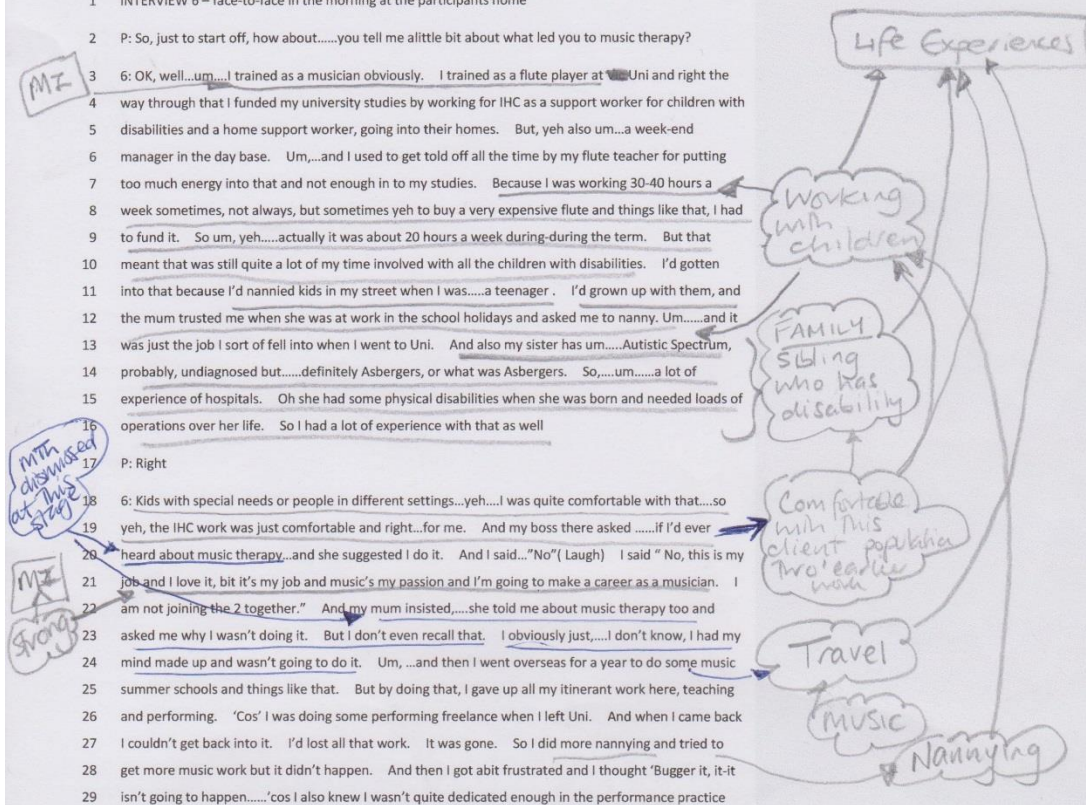 1 INTERVIEW 6 – face-to-face in the morning at the participants home
2 P: So, just to start off, how about......you tell me alittle bit about what led you to music therapy?
3 6: OK, well...um....I trained as a musician obviously. I trained as a flute player at Uni and right the
4 way through that I funded my university studies by working for IHC as a support worker for children with
5 disabilities and a home support worker, going into their homes. But, yeh also um...a week-end
6 manager in the day base. Um,...and I used to get told off all the time by my flute teacher for putting
7 too much energy into that and not enough in to my studies. Because I was working 30-40 hours a
8 week sometimes, not always, but sometimes yeh to buy a very expensive flute and things like that, I had
9 to fund it. So um, yeh.....actually it was about 20 hours a week during-during the term. But that
10 meant that was still quite a lot of my time involved with all the children with disabilities. I'd gotten
11 into that because I'd nannied kids in my street when I was.....a teenager . I'd grown up with them, and
12 the mum trusted me when she was at work in the school holidays and asked me to nanny. Um......and it
13 was just the job I sort of fell into when I went to Uni. And also my sister has um.....Autistic Spectrum,
14 probably, undiagnosed but......definitely Asbergers, or what was Asbergers. So,....um......a lot of
15 experience of hospitals. Oh she had some physical disabilities when she was born and needed loads of
16 operations over her life. So I had a lot of experience with that as well
17 P: Right
18 6: Kids with special needs or people in different settings...yeh....I was quite comfortable with that....so
19 yeh, the IHC work was just comfortable and right...for me. And my boss there asked ......if I'd ever
20 heard about music therapy...and she suggested I do it. And I said..."No"( Laugh) I said " No, this is my
21 job and I love it, bit it's my job and music's my passion and I'm going to make a career as a musician. I
22 am not joining the 2 together." And my mum insisted,....she told me about music therapy too and
23 asked me why I wasn't doing it. But I don't even recall that. I obviously just,....I don't know, I had my
24 mind made up and wasn't going to do it. Um, ...and then I went overseas for a year to do some music
25 summer schools and things like that. But by doing that, I gave up all my itinerant work here, teaching
26 and performing. 'Cos' I was doing some performing freelance when I left Uni. And when I came back
27 I couldn't get back into it. I'd lost all that work. It was gone. So I did more nannying and tried to
28 get more music work but it didn't happen. And then I got abit frustrated and I thought 'Bugger it, it-it
29 isn't going to happen......'cos I also knew I wasn't quite dedicated enough in the performance practice
MI
mth
dismissed
at this
stage
MI
Strong
Life Experiences
Working
with
children
FAMILY
sibling
who has
disability
Comfortable
with this
client population
thro' earlier
work
Travel
MUSIC
Nannying